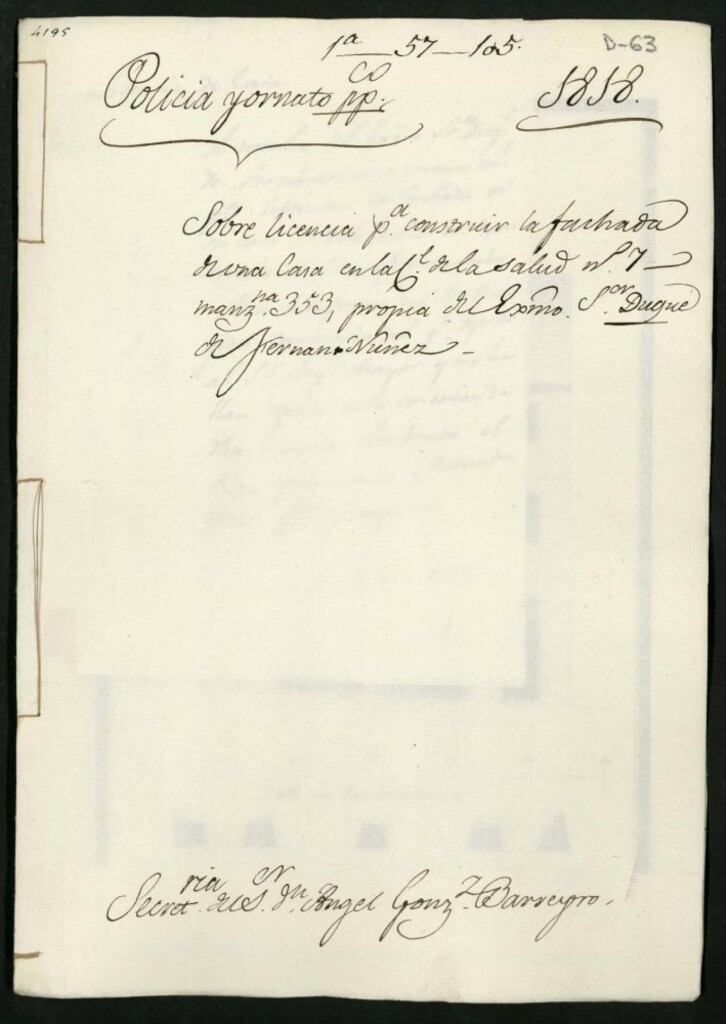 4195
1ª — 57 — 105.
D-63
Policia y ornato pp.co
1818.
Sobre licencia p.ª construir la fachada
de una Casa en la C.l de la Salud n.º 7 —
manz.na 353, propia del Exmo. S.or Duque
de Fernan-Nuñez —
Secret.ria del S.N Dn. Angel Gonz.z Barreyro.